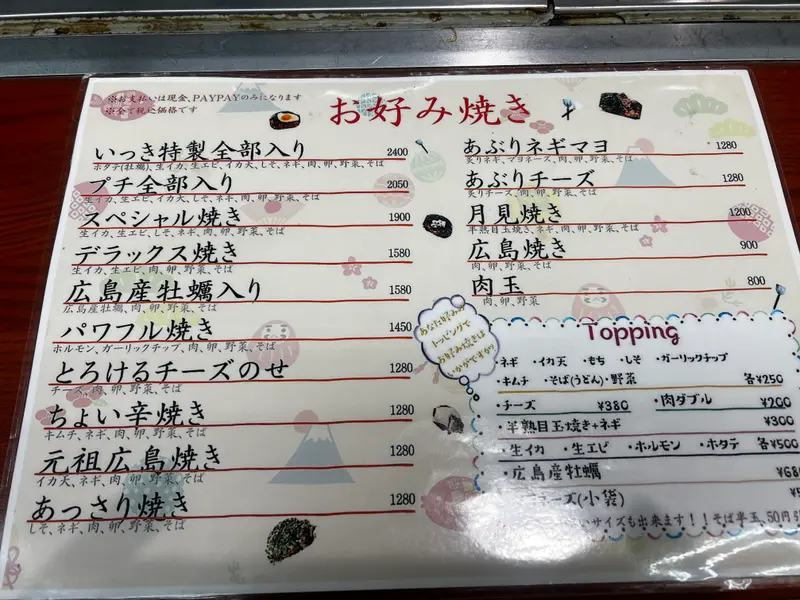 ※お支払いは現金、PAYPAYのみになります
※全て税込価格です
お好み焼き
いっき特製全部入り 2400
ホタテ(牡蠣)、生イカ、生エビ、イカ天、しそ、ネギ、肉、卵、野菜、そば
プチ全部入り 2050
生イカ、生エビ、イカ天、しそ、ネギ、肉、卵、野菜、そば
スペシャル焼き 1900
生イカ、生エビ、しそ、ネギ、肉、卵、野菜、そば
デラックス焼き 1580
生イカ、生エビ、肉、卵、野菜、そば
広島産牡蠣入り 1580
広島産牡蠣、肉、卵、野菜、そば
パワフル焼き 1450
ホルモン、ガーリックチップ、肉、卵、野菜、そば
とろけるチーズのせ 1280
チーズ、肉、卵、野菜、そば
ちょい辛焼き 1280
キムチ、ネギ、肉、卵、野菜、そば
元祖広島焼き 1280
イカ天、ネギ、肉、卵、野菜、そば
あっさり焼き 1280
しそ、ネギ、肉、卵、野菜、そば
あぶりネギマヨ 1280
炙りネギ、マヨネーズ、肉、卵、野菜、そば
あぶりチーズ 1280
炙りチーズ、肉、卵、野菜、そば
月見焼き 1200
半熟目玉焼き、ネギ、肉、卵、野菜、そば
広島焼き 900
肉、卵、野菜、そば
肉玉 800
肉、卵、野菜
あなた好みの
トッピングで
お好み焼きは
いかがですか?
Topping
・ネギ ・イカ天 ・もち ・しそ ・ガーリックチップ
・キムチ ・そば(うどん)・野菜 各¥250
・チーズ ¥380 ・肉ダブル ¥200
・半熟目玉焼き+ネギ ¥300
・生イカ ・生エビ ・ホルモン ・ホタテ 各¥500
・広島産牡蠣 ¥68
ーズ(小袋)
いサイズも出来ます!!そば半玉、50円引